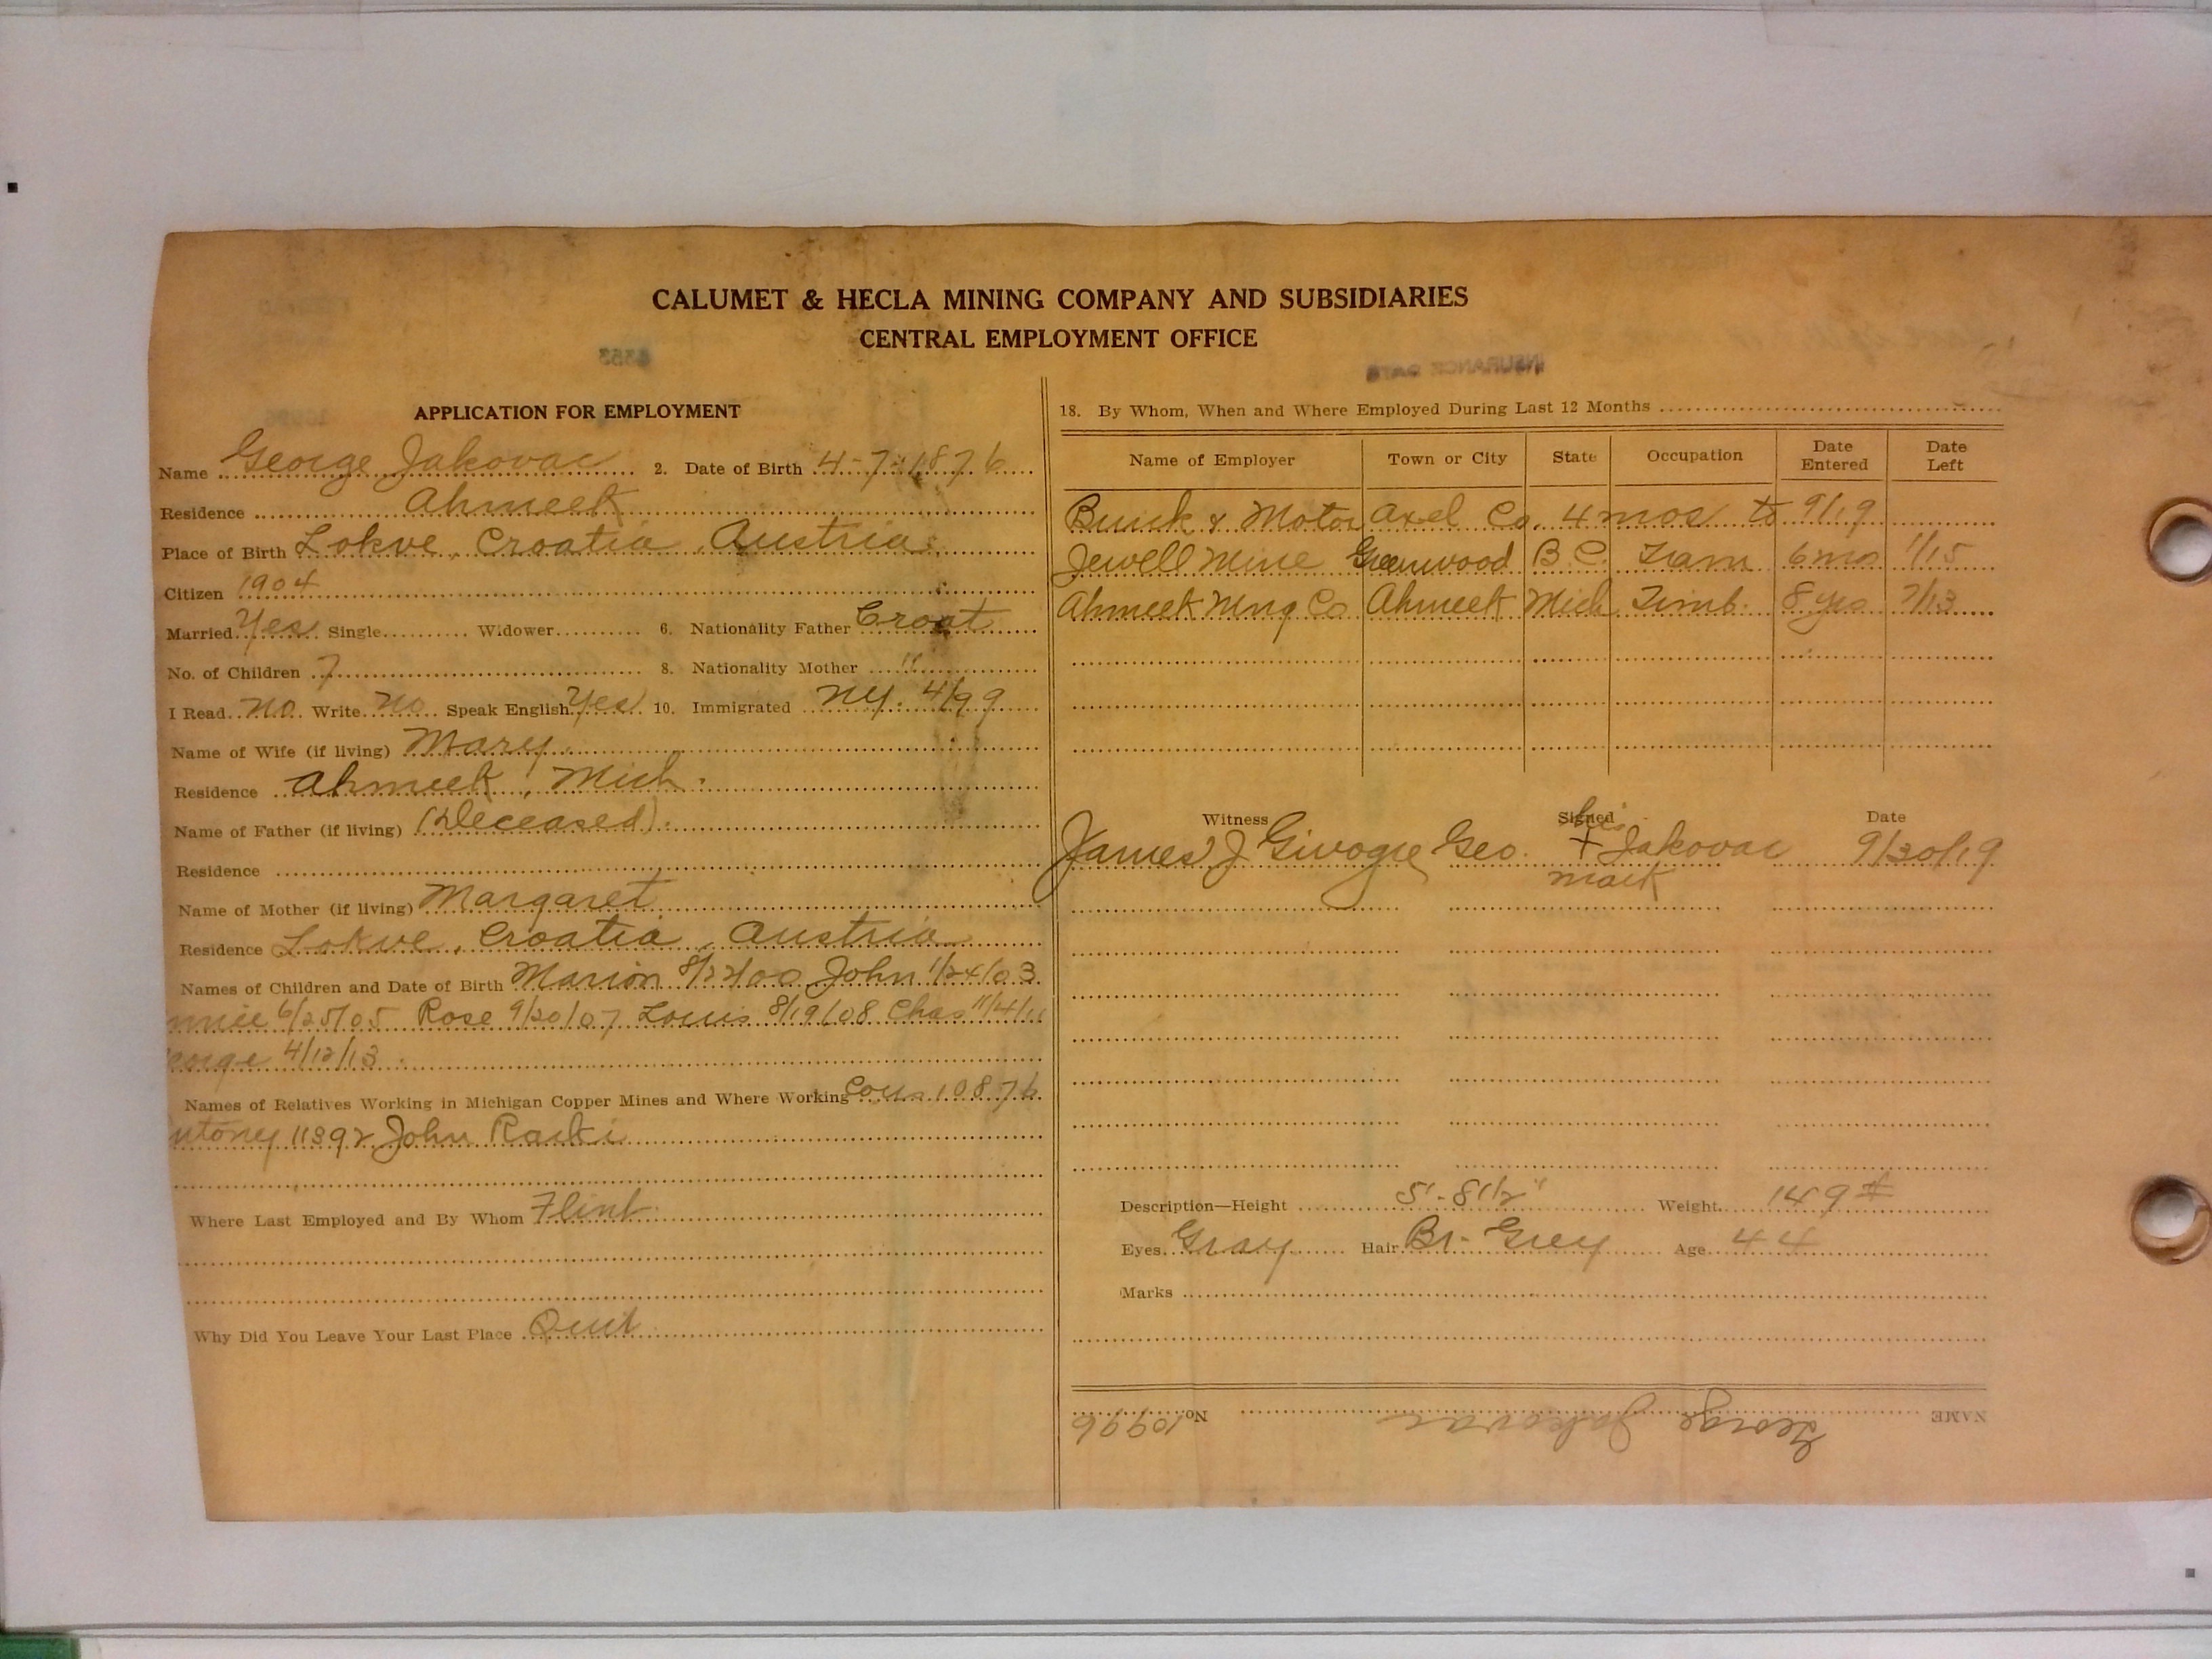 CALUMET & HECLA MINING COMPANY AND SUBSIDIARIES
CENTRAL EMPLOYMENT OFFICE
APPLICATION FOR EMPLOYMENT
Name George Jakovac 2. Date of Birth 4-7-1876
Residence Ahmeek
Place of Birth Lokve, Croatia, Austria
Citizen 1904
Married Yes Single Widower 6. Nationality Father Croat
No. of Children 7 8. Nationality Mother "
I Read No Write No Speak English Yes 10. Immigrated NY. 4/99
Name of Wife (if living) Mary
Residence Ahmeek, Mich.
Name of Father (if living) (Deceased)
Residence
Name of Mother (if living) Margaret
Residence Lokve, Croatia, Austria
Names of Children and Date of Birth Marion 8/22/00 John 1/24/03
nnie 6/25/05 Rose 9/20/07 Louis 8/19/08 Chas
eorge 4/12/13
Names of Relatives Working in Michigan Copper Mines and Where Working 10876
ntoney 11392 John
Where Last Employed and By Whom Flint
Why Did You Leave Your Last Place Quit
18. By Whom, When and Where Employed During Last 12 Months
Name of Employer Town or City State Occupation Date Entered Date Left
Buick & Motor Axel Co. 4 mos to 9/19
Jewell Mine Greenwood B.C. Tram 6 mo 1/15
Ahmeek Mng Co Ahmeek Mich Timb. 8 yrs 7/13
Witness Signed Date
James J Geo. his + mark Jakovac 9/30/19
Description—Height 5'-8 1/2" Weight 149 #
Eyes Gray Hair Br-Grey Age 44
Marks
NAME George Jakovac No. 10996
INSURANCE DATE